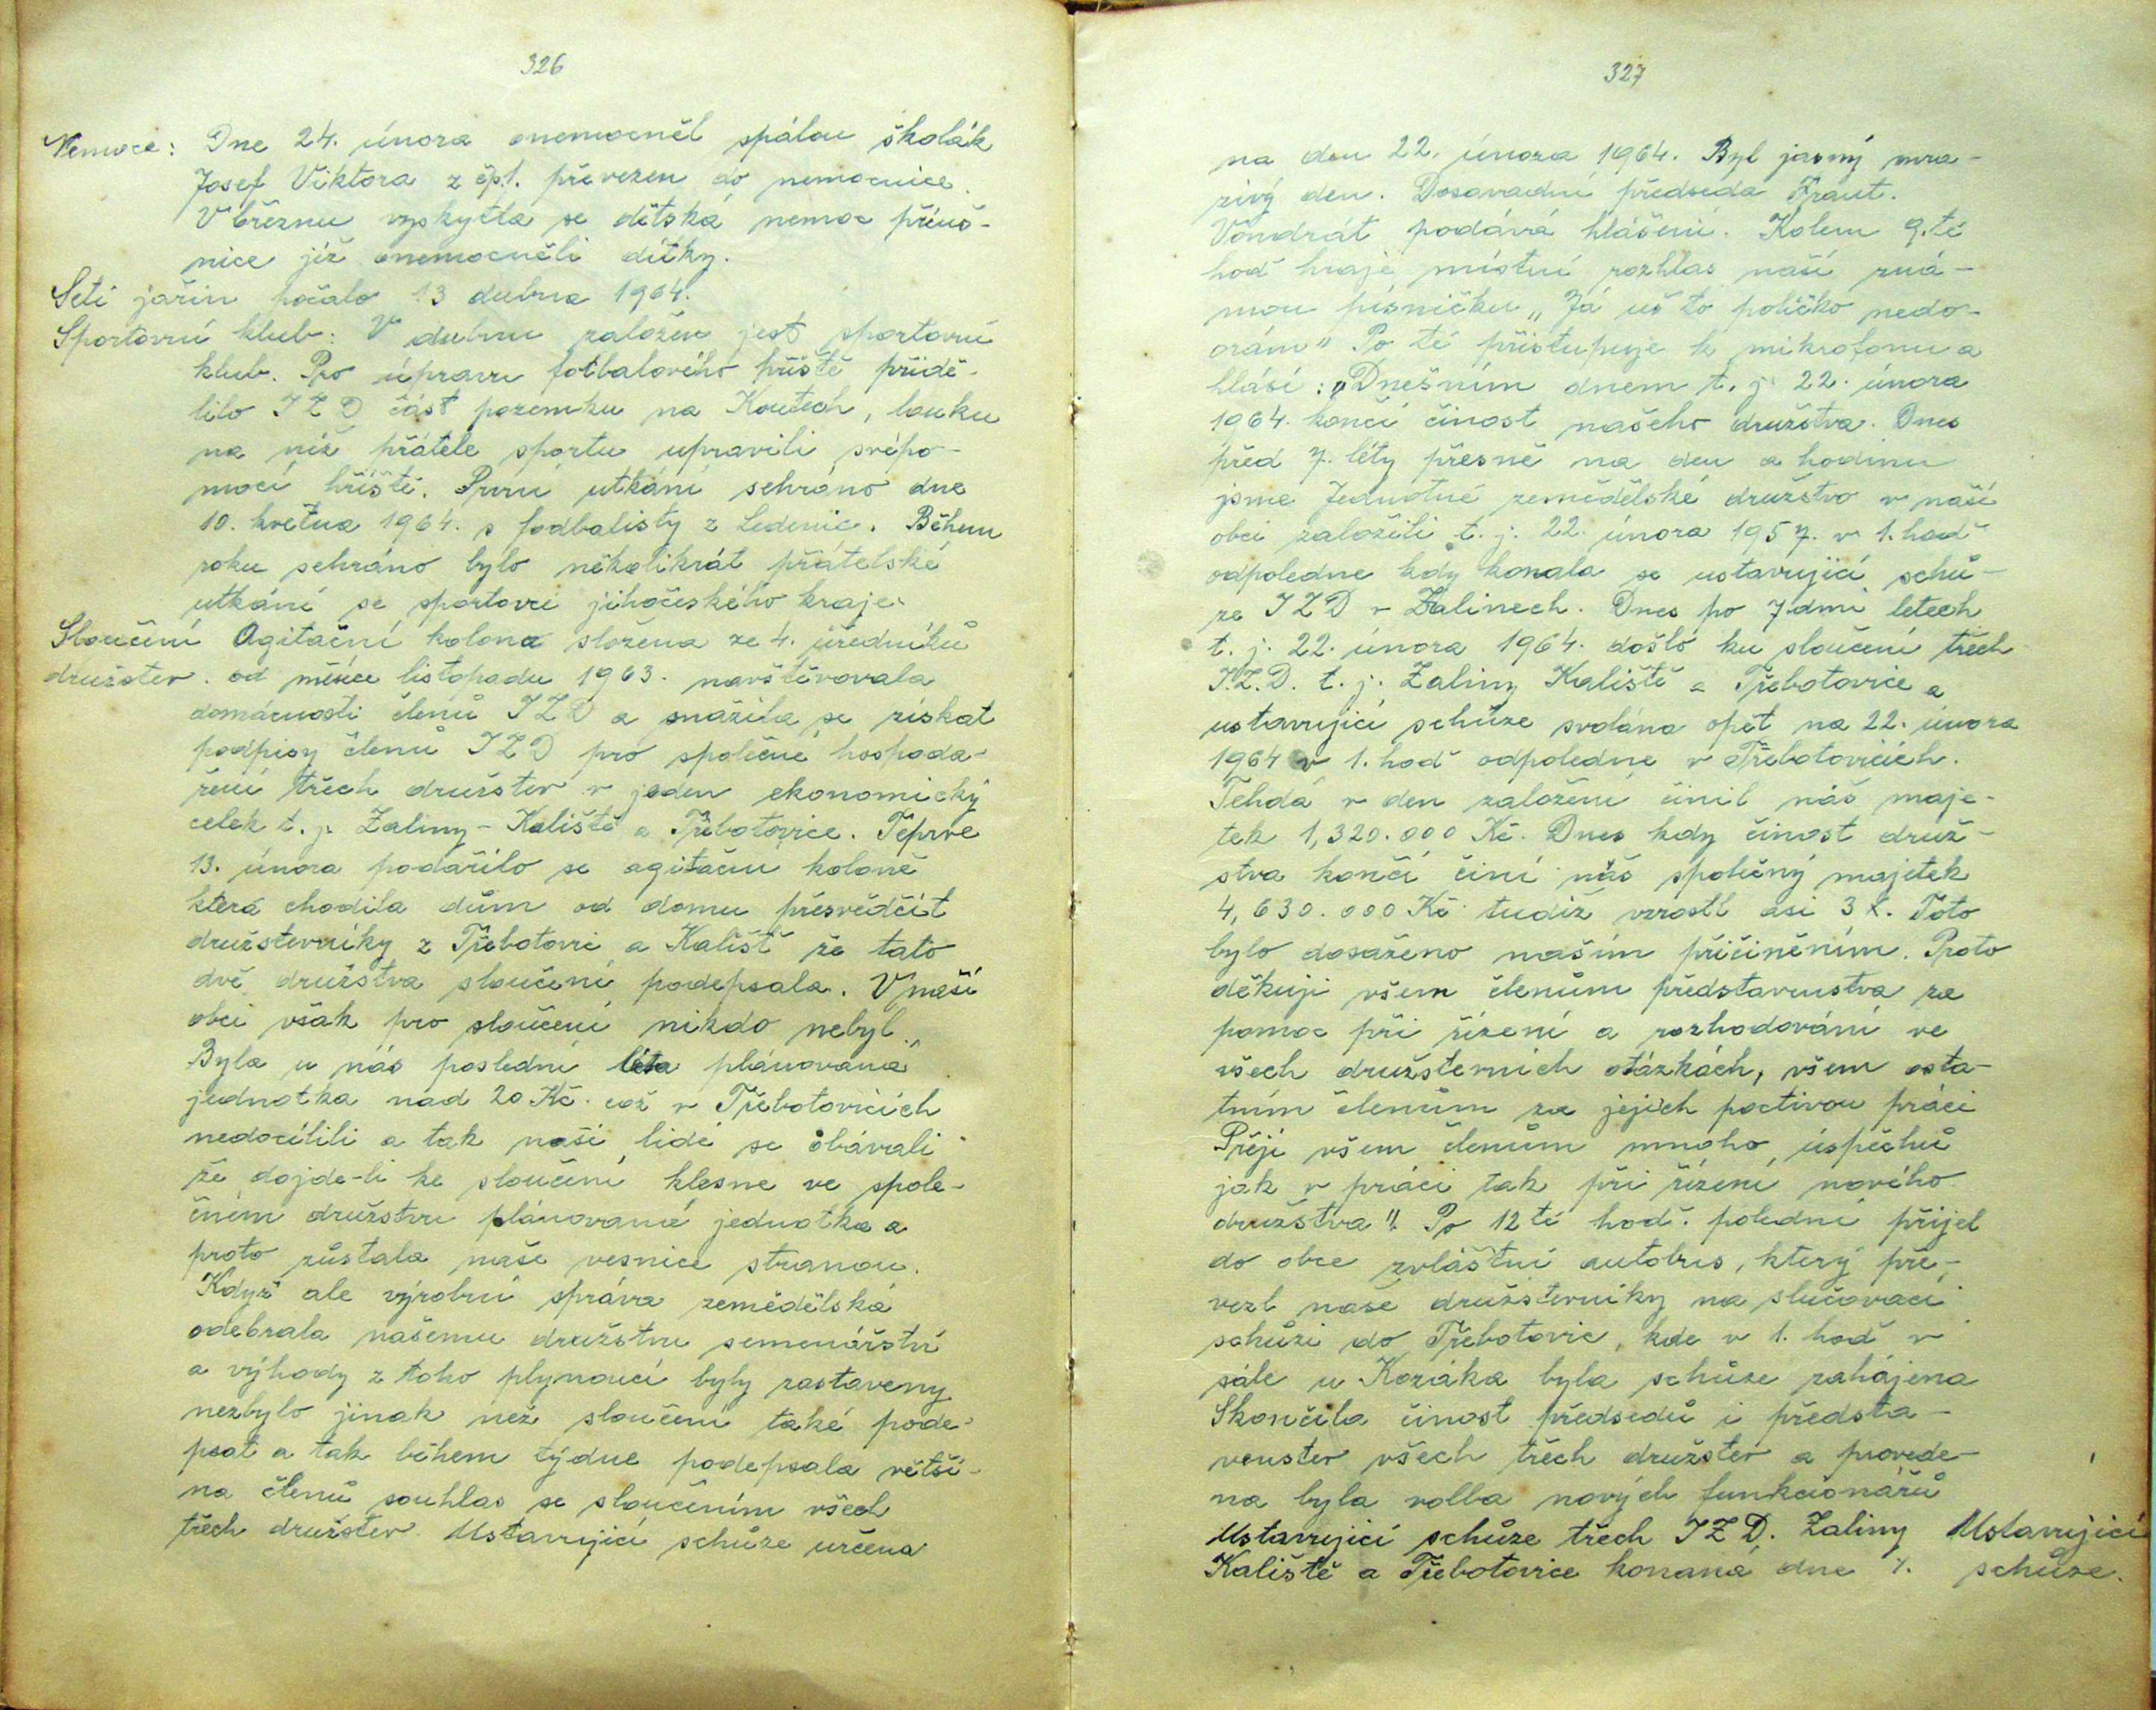 326
Nemoce: Dne 24. února onemocněl spálou školák
Josef Viktora z čp. 1. převezen do nemocnice.
V březnu vyskytla se dětská nemoc příuš-
nice jíž onemocněli dítky.
Setí jařin počalo 13 dubna 1964.
Sportovní klub: V dubnu založen jest sportovní
klub. Pro úpravu fotbalového hřiště přidě-
lilo JZD část pozemku na Koutech, louku
na níž přátelé sportu upravili svépo-
mocí hřiště. První utkání sehráno dne
10. května 1964. s fodbalisty z Ledenic. Během
roku sehráno bylo několikrát přátelské
utkání se sportovci jihočeského kraje.
Sloučení Agitační kolona složena ze 4. úředníků
družstev. od měsíce listopadu 1963. navštěvovala
domácnosti členů JZD a snažila se získat
podpisy členů JZD pro společné hospoda-
ření třech družstev v jeden ekonomický
celek t. j. Zaliny - Kaliště a Třebotovice. Teprve
13. února podařilo se agitační koloně
která chodila dům od domu přesvědčit
družstevníky z Třebotovic a Kališť že tato
dvě družstva sloučení podepsala. V naší
obci však pro sloučení nikdo nebyl.
Byla u nás poslední léta plánovaná
jednotka nad 20 Kč. což v Třebotovicích
nedocílili a tak naši lidé se obávali
že dojde-li ke sloučení klesne ve spole-
čném družstvu plánovaná jednotka a
proto zůstala naše vesnice stranou.
Když ale výrobní správa zemědělská
odebrala našemu družstvu semenářství
a výhody z toho plynoucí byly zastaveny
nezbylo jinak než sloučení také pode-
psat a tak během týdne podepsala větši-
na členů souhlas se sloučením všech
třech družstev. Ustavující schůze určena
327
na den 22. února 1964. Byl jasný mra-
zivý den. Dosavadní předseda Frant.
Vondrát podává hlášení. Kolem 9.té
hod hraje místní rozhlas naší zná-
mou písničku „Já už to políčko nedo-
orám" Po té přistupuje k mikrofonu a
hlásí: „Dnešním dnem t. j. 22. února
1964. končí činost našeho družstva. Dnes
před 7. léty přesně na den a hodinu
jsme Jednotné zemědělské družstvo v naší
obci založili t. j. 22. února 1957. v 1. hod
odpoledne kdy konala se ustavující schů-
ze JZD v Zalinech. Dnes po 7dmi letech
t. j. 22. února 1964. došlo ku sloučení třech
J.Z.D. t. j. Zaliny Kaliště a Třebotovice a
ustavující schůze svolána opět na 22. února
1964 v 1. hod odpoledne v Třebotovicích.
Tehdá v den založení činil náš maje-
tek 1,320.000 Kč. Dnes kdy činost druž-
stva končí činí náš společný majetek
4,630.000 Kč tudíž vzrostl asi 3 x. Toto
bylo dosaženo naším přičiněním. Proto
děkuji všem členům představenstva za
pomoc při řízení a rozhodování ve
všech družstevních otázkách, všem osta-
tním členům za jejich poctivou práci
Přeji všem členům mnoho úspěchů
jak v práci tak při řízení nového
družstva". Po 12 té hod. polední přijel
do obce zvláštní autobus, který pře-
vezl naše družstevníky na slučovací
schůzi do Třebotovic, kde v 1. hod v
sále u Kozáka byla schůze zahájena
Skončila činost předsedů i předsta-
venstev všech třech družstev a provede-
na byla volba nových funkcionářů
Ustavující schůze třech JZD. Zaliny Ustavující
Kaliště a Třebotovice konaná dne %. schůze.